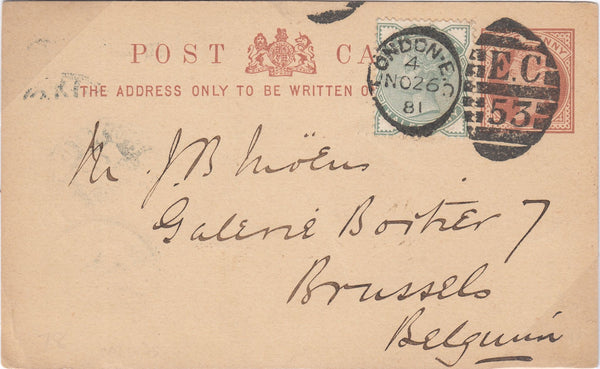 POST CA
THE ADDRESS ONLY TO BE WRITTEN O
LONDON·E.C
4
NO26
81
E.C
53
NNY
Mr. J B Moëns
Galerie Bortier 7
Brussels
Belgium